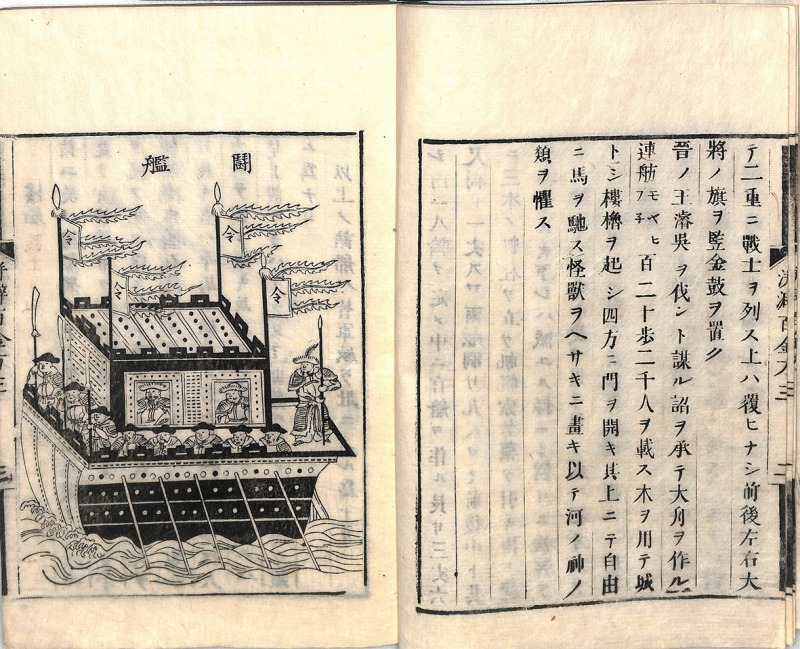 テ二重ニ戰士ヲ列ス上ハ覆ヒナシ前後左右大
將ノ旗ヲ監金鼓ヲ置ク
晉ノ王濬吳ヲ伐ント謀ル詔ヲ承テ大舟ヲ作ル
連舫モヤヒフ子百二十歩二千人ヲ載ス木ヲ用テ城
トシ樓櫓ヲ起シ四方ニ門ヲ開キ其上ニテ自由
ニ馬ヲ馳ス怪獸ヲヘサキニ畫キ以テ河ノ神ノ
類ヲ懼ス
鬪艦
令
令
令